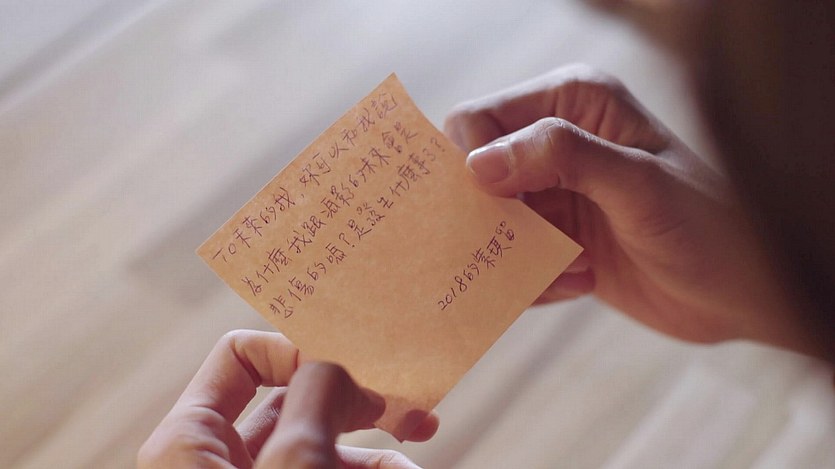 To未來的我,妳可以和我說
為什麼我跟的未來會是
悲傷的嗎?是發生什麼事了?
2018的琪留